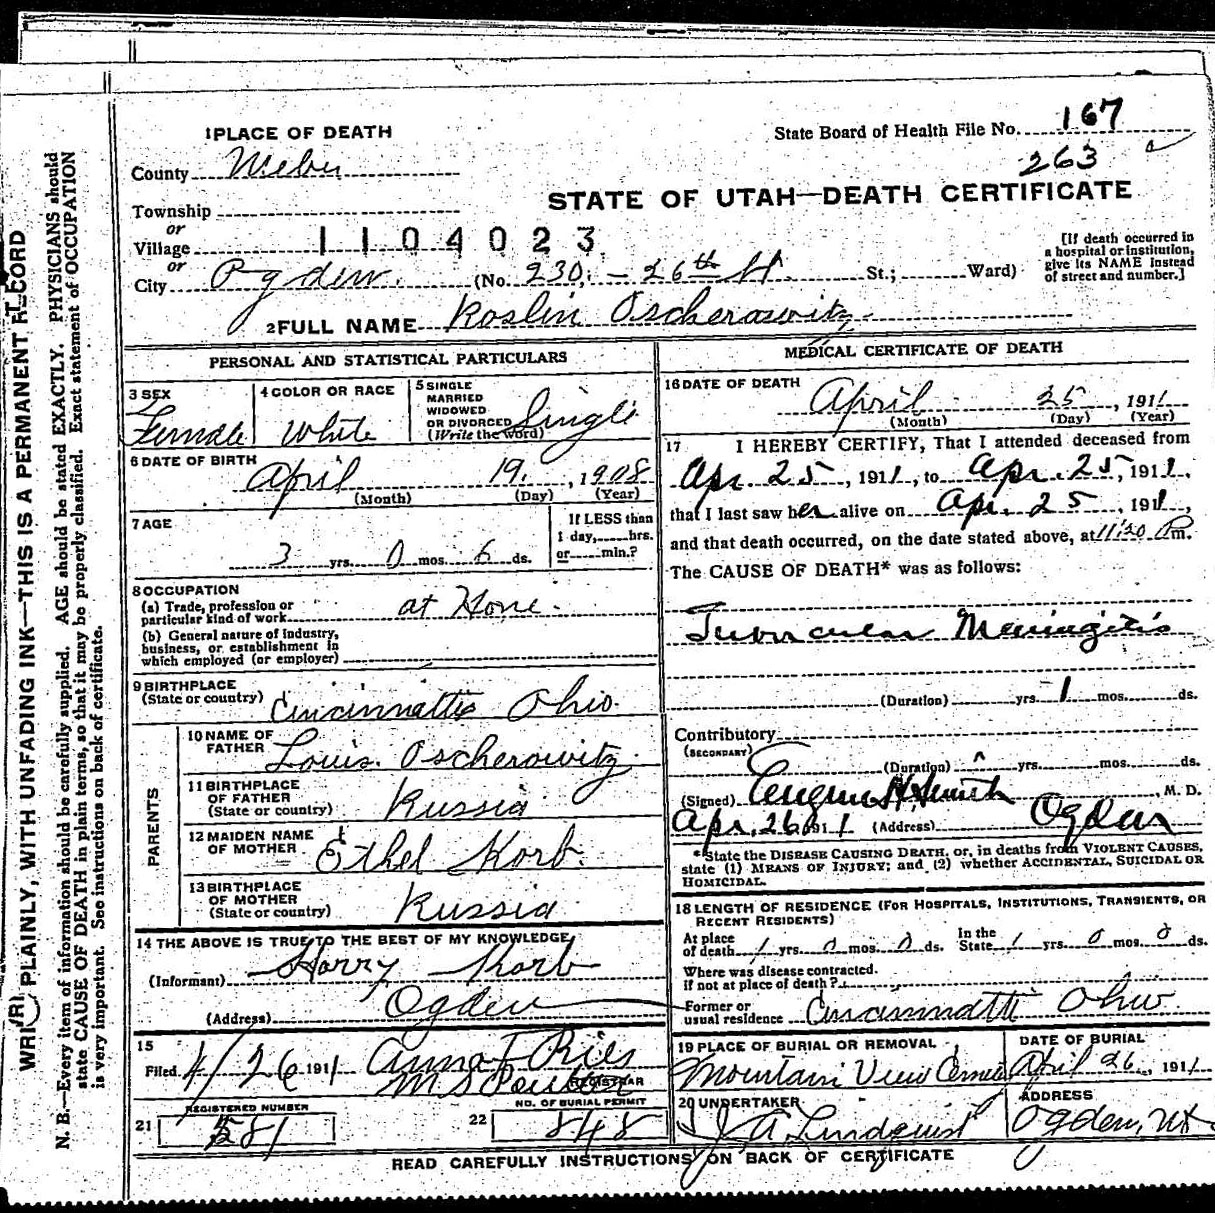 1 PLACE OF DEATH
State Board of Health File No. 167
263
County Weber
STATE OF UTAH—DEATH CERTIFICATE
Township
or
Village
1104023
or
City Ogden. (No. 230, - 26th St. St.; Ward)
[If death occurred in
a hospital or institution,
give its NAME instead
of street and number.]
2 FULL NAME Roslin Oscherowitz
PERSONAL AND STATISTICAL PARTICULARS
3 SEX
Female
4 COLOR OR RACE
White
5 SINGLE
MARRIED
WIDOWED
OR DIVORCED
(Write the word)
Single
6 DATE OF BIRTH
April 19, 1908
(Month) (Day) (Year)
7 AGE
3 yrs. 0 mos. 6 ds.
If LESS than
1 day, hrs.
or min.?
8 OCCUPATION
(a) Trade, profession or
particular kind of work at Home.
(b) General nature of industry,
business, or establishment in
which employed (or employer)
9 BIRTHPLACE
(State or country) Cincinnatti Ohio.
PARENTS
10 NAME OF
FATHER Louis. Oscherowitz
11 BIRTHPLACE
OF FATHER
(State or country) Russia
12 MAIDEN NAME
OF MOTHER Ethel Korb.
13 BIRTHPLACE
OF MOTHER
(State or country) Russia
14 THE ABOVE IS TRUE TO THE BEST OF MY KNOWLEDGE
(Informant) Harry Korb
(Address) Ogden
15
Filed 4/26 1911 Anna F Ries
REGISTRAR
REGISTERED NUMBER
21 581
NO. OF BURIAL PERMIT
22 848
MEDICAL CERTIFICATE OF DEATH
16 DATE OF DEATH
April 25, 1911
(Month) (Day) (Year)
17 I HEREBY CERTIFY, That I attended deceased from
Apr. 25, 1911, to Apr. 25, 1911,
that I last saw her alive on Apr. 25, 1911,
and that death occurred, on the date stated above, at 11:20 P.m.
The CAUSE OF DEATH* was as follows:
Tubercular Meningitis
(Duration) yrs. 1 mos. ds.
Contributory
(SECONDARY)
(Duration) yrs. mos. ds.
(Signed) Eugene H Smith, M. D.
Apr. 26, 1911 (Address) Ogden
*State the DISEASE CAUSING DEATH, or, in deaths from VIOLENT CAUSES,
state (1) MEANS OF INJURY; and (2) whether ACCIDENTAL, SUICIDAL OR
HOMICIDAL.
18 LENGTH OF RESIDENCE (FOR HOSPITALS, INSTITUTIONS, TRANSIENTS, OR
RECENT RESIDENTS)
At place
of death 1 yrs. 0 mos. 0 ds. In the
State 1 yrs. 0 mos. 0 ds.
Where was disease contracted.
if not at place of death?
Former or
usual residence Cincinnatti Ohio.
19 PLACE OF BURIAL OR REMOVAL
Mountain View Cemetery
DATE OF BURIAL
April 26, 1911
20 UNDERTAKER
J. A. Lindquist
ADDRESS
Ogden, Ut
READ CAREFULLY INSTRUCTIONS ON BACK OF CERTIFICATE
WRITE PLAINLY, WITH UNFADING INK—THIS IS A PERMANENT RECORD
N. B.—Every item of information should be carefully supplied. AGE should be stated EXACTLY. PHYSICIANS should
state CAUSE OF DEATH in plain terms, so that it may be properly classified. Exact statement of OCCUPATION
is very important. See instructions on back of certificate.